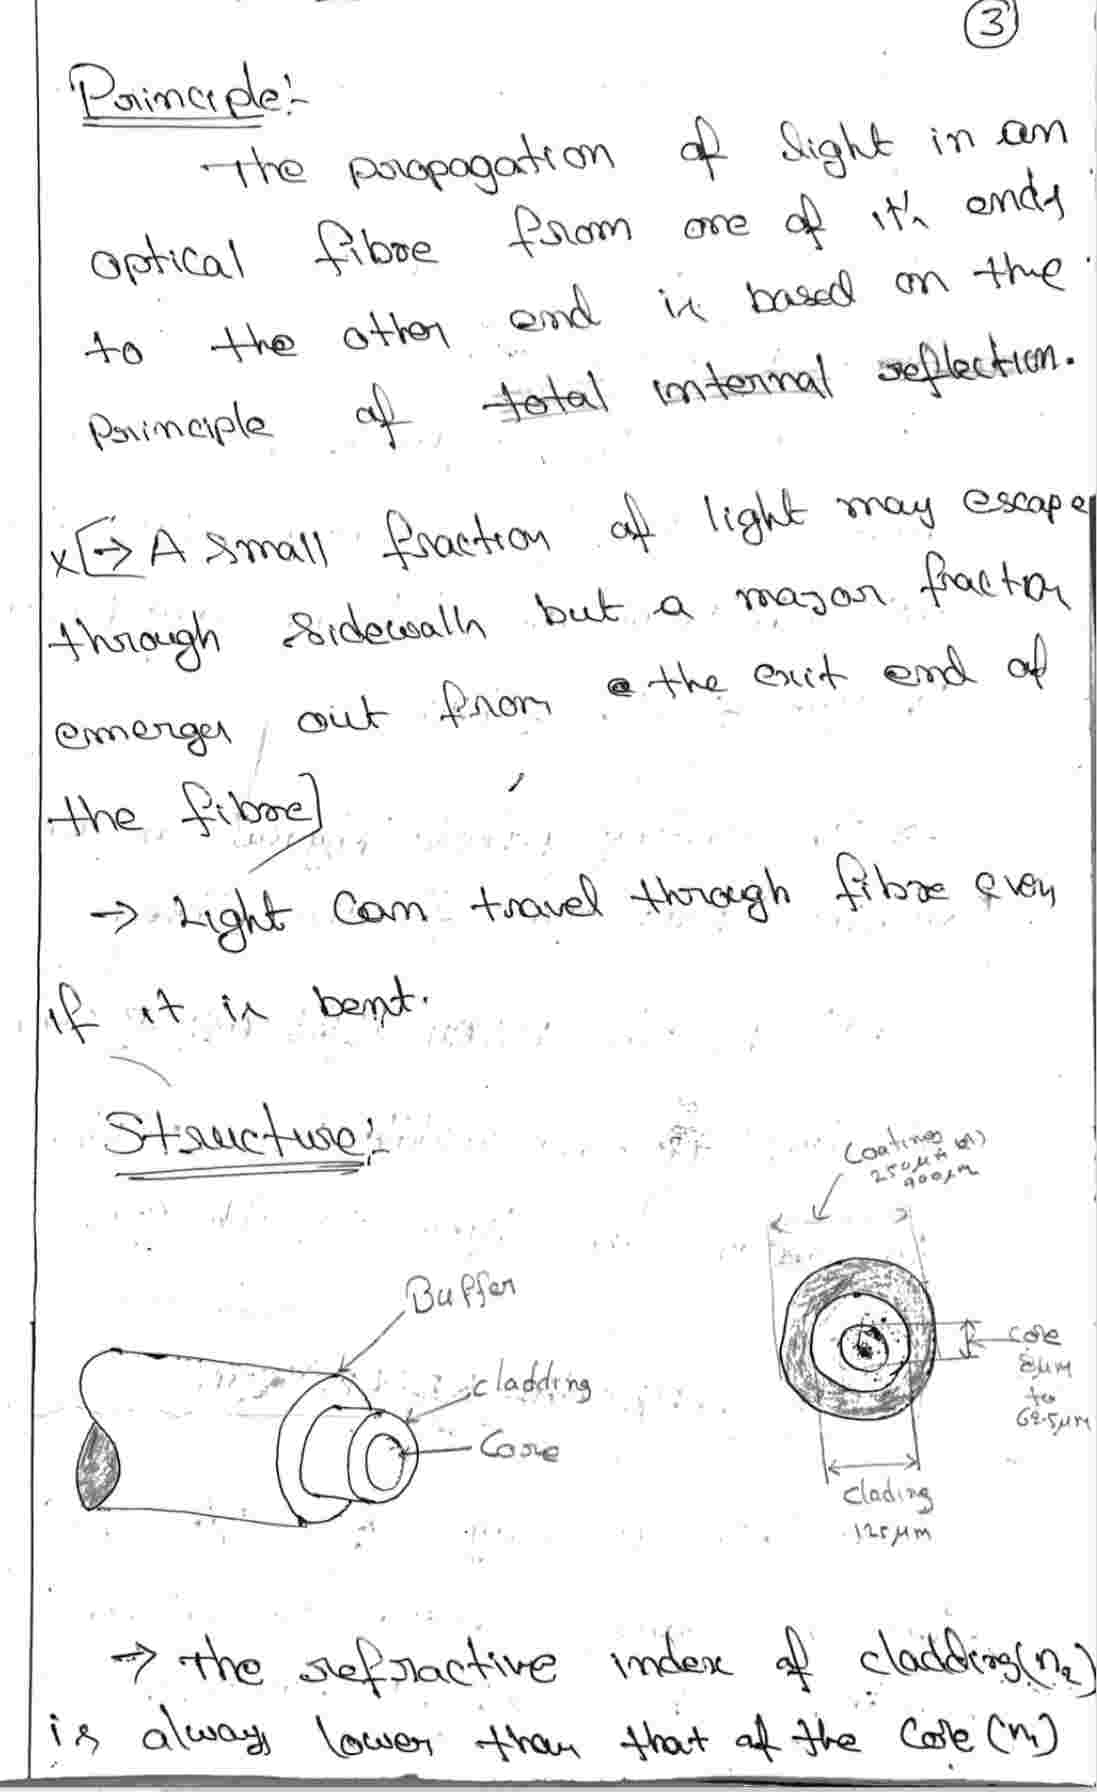 3
Principle:-
The propagation of light in an
optical fibre from one of it's ends
to the other end is based on the
Principle of total internal reflection.
x[→ A small fraction of light may escape
through sidewalls but a major fraction
emerges out from the exit end of
the fibre]
→ Light can travel through fibre even
if it is bent.
Structure:-
Coatings
250μm (or)
900μm
Buffer
cladding
Core
core
8μm
to
62.5μm
clading
125μm
→ The refractive index of cladding (n₂)
is always lower than that of the core (n₁)